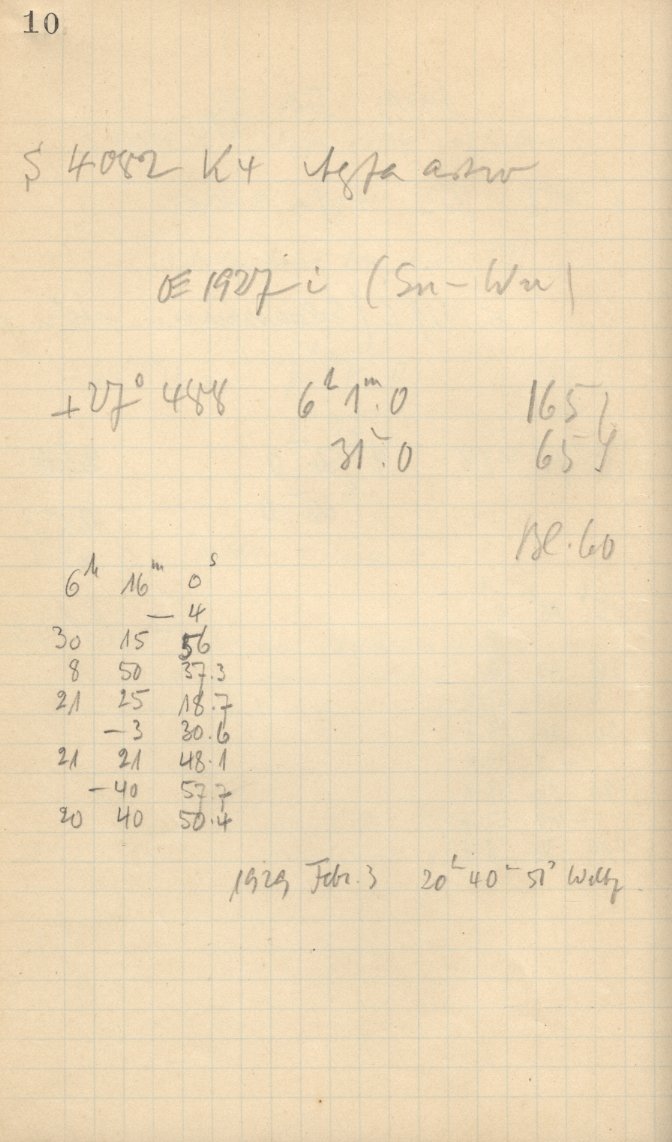 10
S 4082 K4 Agfa astro
Œ 1927 i (Sn-Wn)
+27° 488 6ʰ 1ᵐ.0 165 }
31.0 65 }
Bl. 60
6ʰ 16ᵐ 0ˢ
— 4
30 15 56
8 50 37.3
21 25 18.7
—3 30.6
21 21 48.1
—40 57.7
20 40 50.4
1929 Febr. 3 20ʰ 40ᵐ 51ˢ Weltz